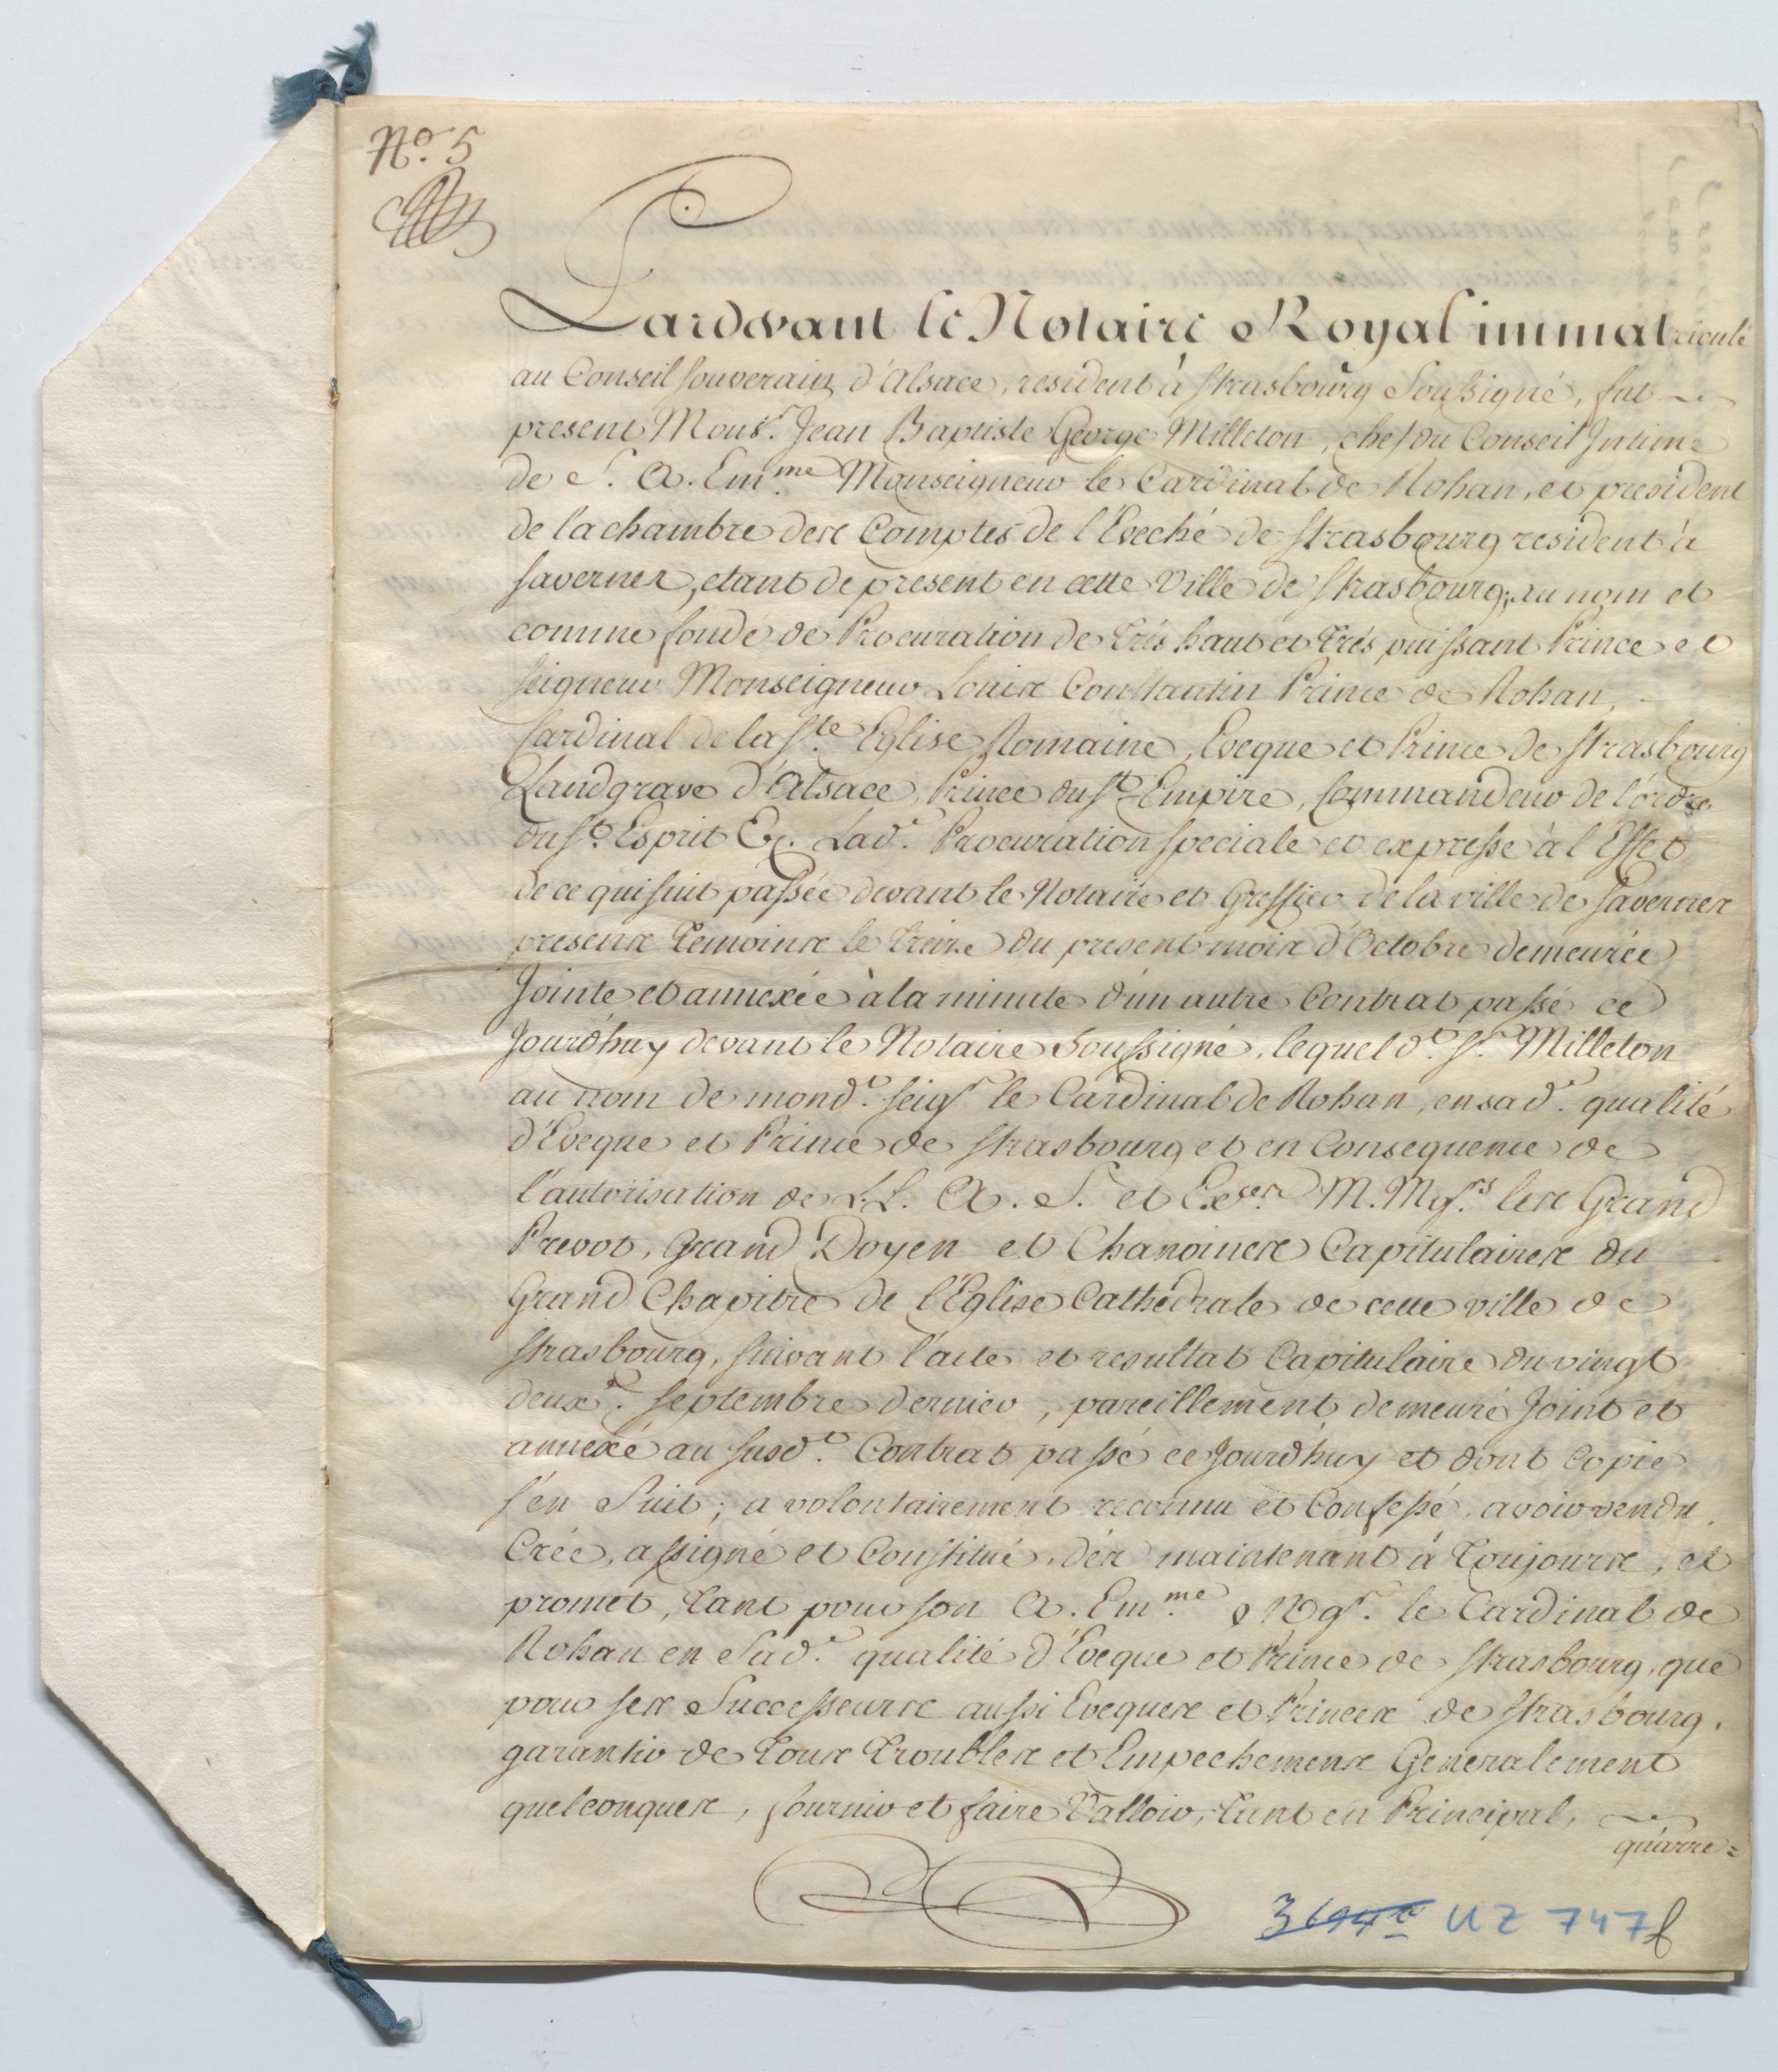 No. 5
Pardevant le Notaire Royal immatriculé
au Conseil souverain d'Alsace, resident à strasbourg Soussigné, fut
present Mons.r Jean Baptiste George Milleton, chef du Conseil Intime
de S. A. Em.me Monseigneur le Cardinal de Rohan, et president
de la chambre des Comptes de l'Eveché de strasbourg resident à
saverne, etant de present en cette Ville de strasbourg; au nom et
comme fondé de Procuration de très haut et très puissant Prince et
seigneur Monseigneur Louis Constantin Prince de Rohan,
Cardinal de la s.te Eglise Romaine, Eveque et Prince de strasbourg
Landgrave d'Alsace, Prince du s.t Empire, Commandeur de l'ordre
du s.t Esprit &c. Lad.e Procuration speciale et expresse à l'Effet
de ce qui suit passée devant le Notaire et Greffier de la ville de saverne
presens temoins le treize du present mois d'Octobre demeurée
Jointe et annexée à la minute d'un autre Contrat passé ce
Jourd'huy devant le Notaire Soussigné, lequel d.t s.r Milleton
au nom de mond.t seig.r le Cardinal de Rohan, en sad.e qualité
d'Eveque et Prince de strasbourg et en Consequence de
l'autorisation de L.L. A. S. et Ex.ces M.Mg.rs les Grand
Prevot, Grand Doyen et Chanoines Capitulaires du
Grand Chapitre de l'Eglise Cathédrale de cette ville de
strasbourg, suivant l'acte et resultat Capitulaire du vingt
deux.e septembre dernier, pareillement demeuré Joint et
annexé au susd.t Contrat passé ce Jourd'huy et dont Copie
s'en Suit; a volontairement reconnu et Confessé, avoir vendu,
Créé, assigné et Constitué, dès maintenant à toujours, et
promet, tant pour son A. Em.me Mgr. le Cardinal de
Rohan en Sad.e qualité d'Eveque et Prince de strasbourg, que
pour ses Successeurs aussi Eveques et Princes de strasbourg,
garantir de tous troubles et Empechemens Generalement
quelconques, fournir et faire Valloir, tant en Principal,
qu'arre=
UZ 747f